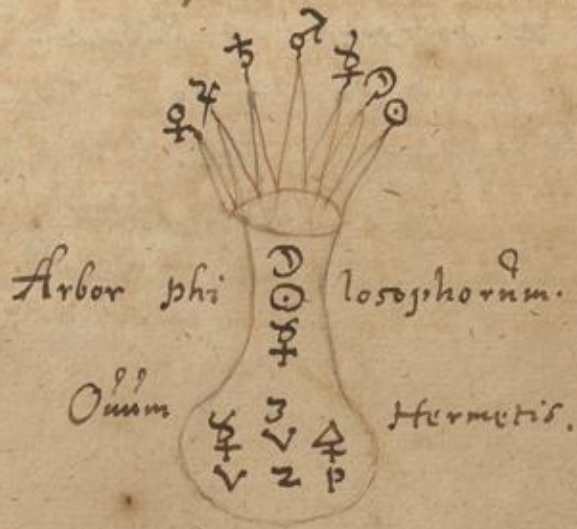 ♀ ♃ ♄ ♂ ☿ ☽ ☉
☽
Arbor phi ☉ losophorŭm.
☿
Oŭŭm Hermetis.
3
☿ V 🜍
V Z P